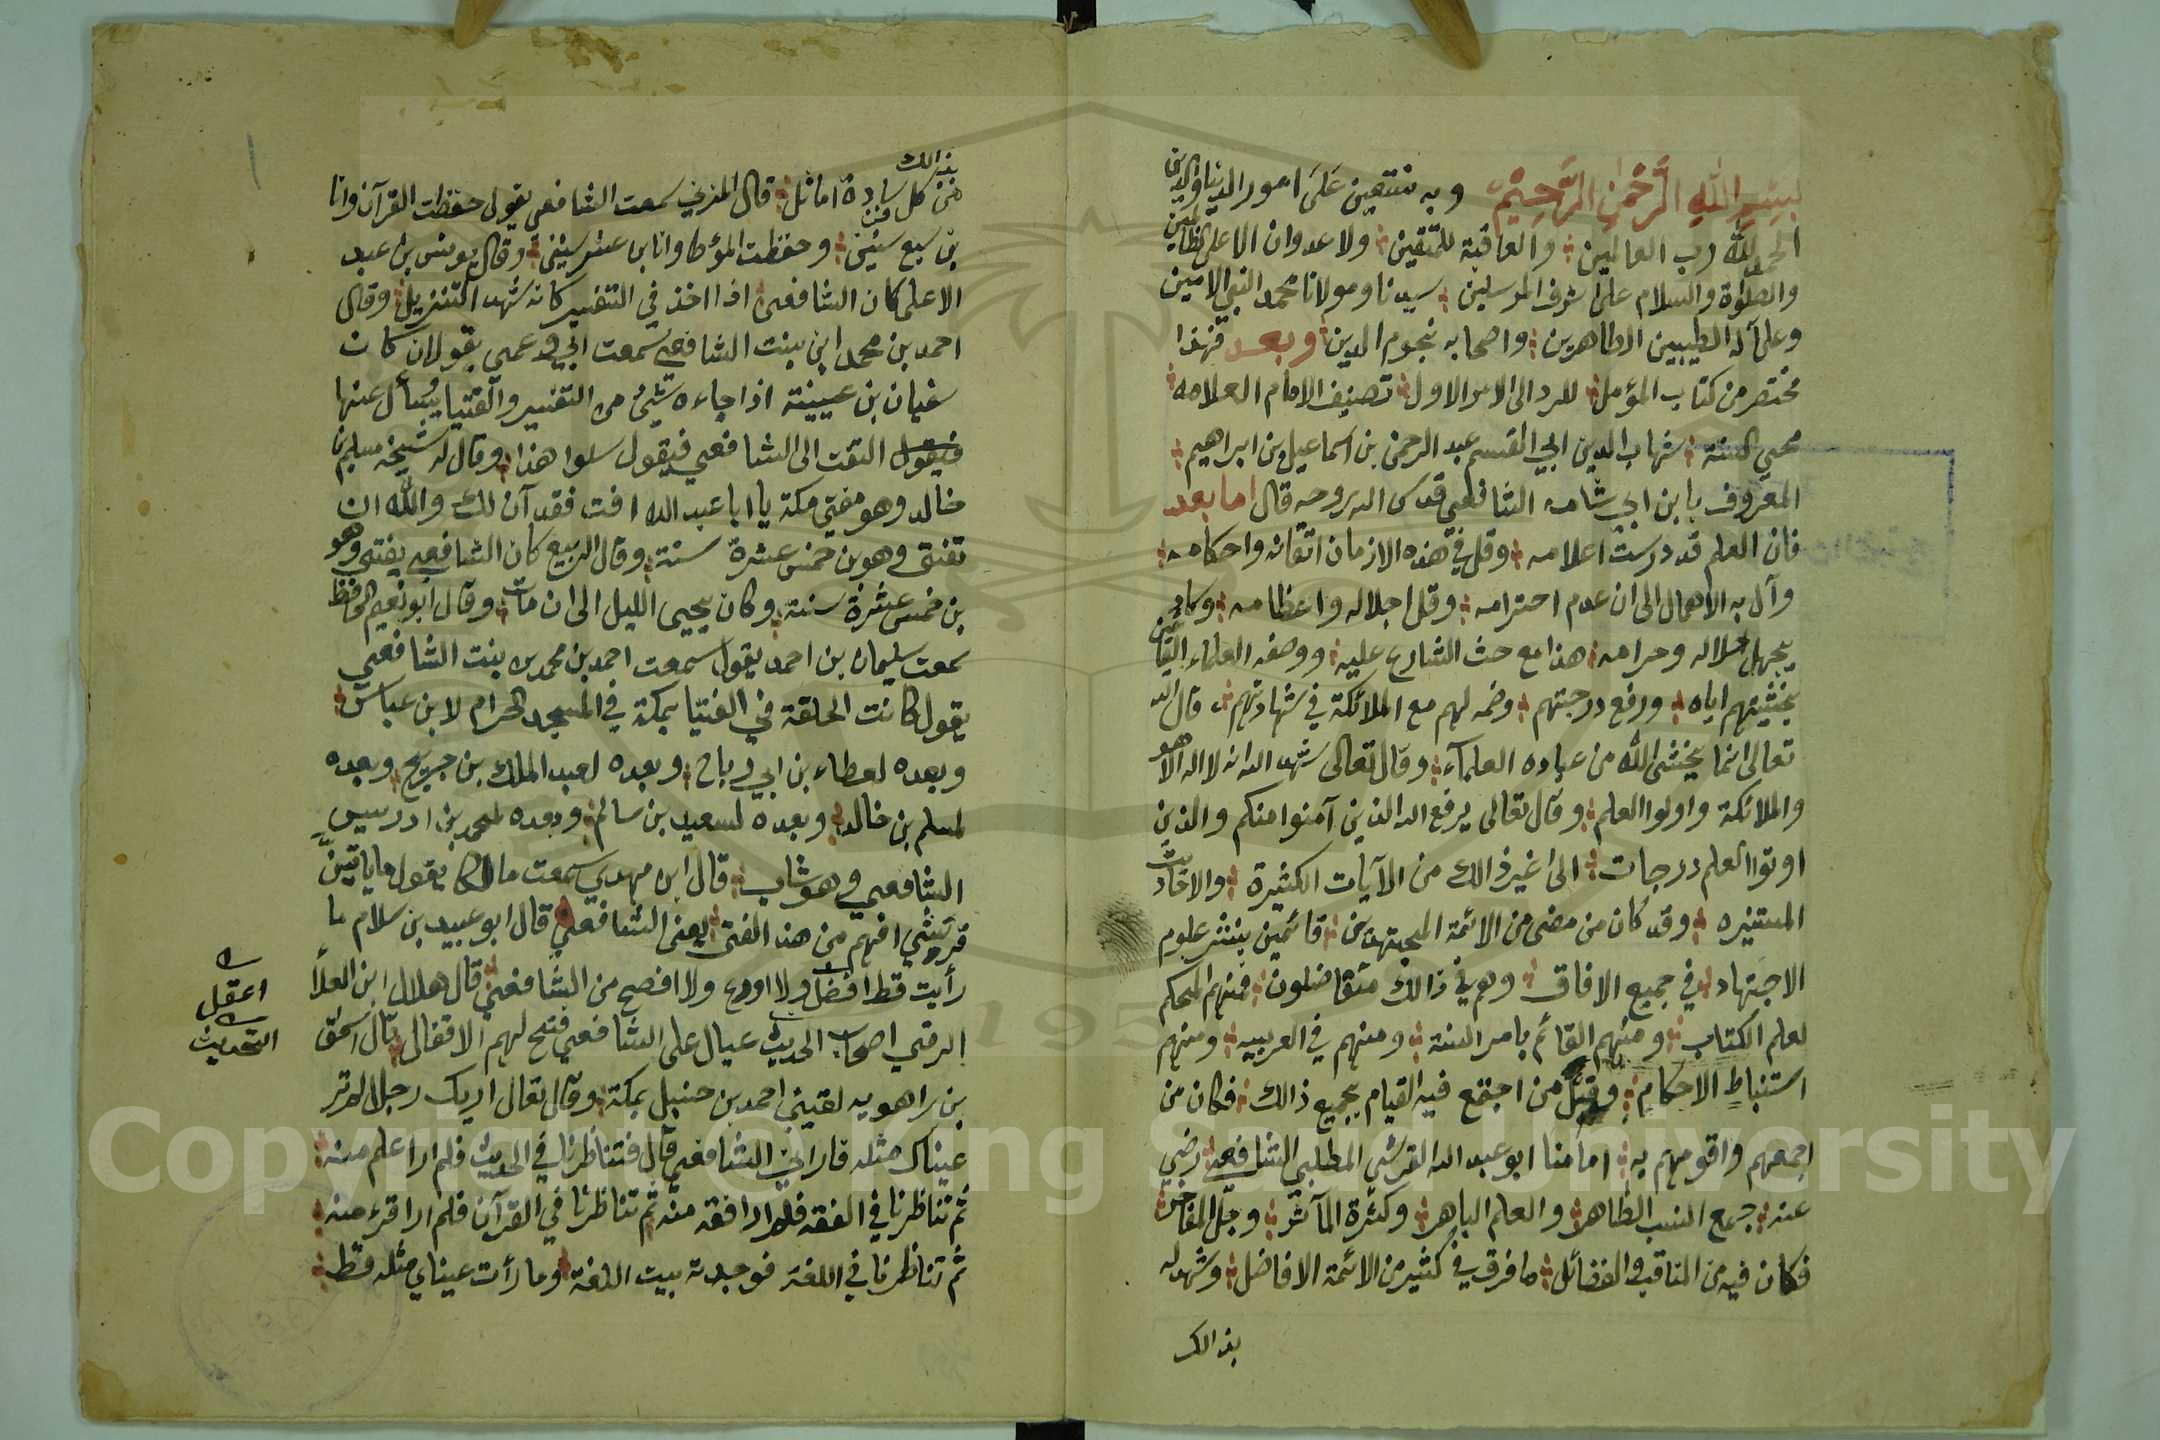 بسم الله الرحمن الرحيم وبه نستعين على امور الدنيا والدين
الحمد لله رب العالمين والعاقبة للمتقين ولا عدوان الا على الظالمين
والصلوة والسلام على اشرف المرسلين سيدنا ومولانا محمد النبي الامين
وعلى آله الطيبين الطاهرين واصحابه نجوم الدين وبعد فهذا
مختصر من كتاب المؤمل للرد الى الامر الاول تصنيف الامام العلامه
محيي السنة شهاب الدين ابي القسم عبد الرحمن بن اسماعيل بن ابراهيم
المعروف بابن ابي شامه الشافعي قدس الله روحه قال اما بعد
فان العلم قد درست اعلامه وقل في هذه الازمان اتقانه واحكامه
وآل به الاهمال الى ان عدم احترامه وقل اجلاله واعظامه وكاد
يجهل حلاله وحرامه هذا مع حث الشارع عليه ووصفه العلماء القائمين
بخشيتهم اياه ورفع درجتهم وضمه لهم مع الملائكة في شهادتهم قال الله
تعالى انما يخشى الله من عباده العلمآء وقال تعالى شهد الله انه لا اله الا هو
والملائكة واولوا العلم وقال تعالى يرفع الله الذين آمنوا منكم والذين
اوتوا العلم درجات الى غير ذالك من الآيات الكثيرة والاحاديث
المستنيره وقد كان من مضى من الائمة المجتهدين قائمين بنشر علوم
الاجتهاد في جميع الافاق وهم في ذالك متفاضلون فمنهم المحكم
لعلم الكتاب ومنهم القائم بامر السنة ومنهم في العربيه ومنهم
استنباط الاحكام وقل من اجتمع فيه القيام بجميع ذالك فكان من
اجمعهم واقومهم به امامنا ابو عبد الله القرشي المطلبي الشافعي رضي
عنه جمع النسب الطاهر والعلم الباهر وكثرة المآثر وجل المفاخر
فكان فيه من المناقب والفضائل ما فرق في كثير من الائمة الافاضل وشهد له
بذالك
بذالك
من كل فن سادة اماثل قال المزني سمعت الشافعي يقول حفظت القرآن وانا
بن سبع سنين وحفظت المؤطا وانا ابن عشر سنين وقال يونس بن عبد
الاعلى كان الشافعي اذا اخذ في التفسير كانه شهد التنزيل وقال
احمد بن محمد ابن بنت الشافعي سمعت ابي وعمي يقولان كان
سفيان بن عيينة اذا جاءه شيئ من التفسير والفتيا يسأل عنها
فيقول التفت الى الشافعي فيقول سلوا هذا وقال له شيخه مسلم بن
خالد وهو مفتي مكة يا ابا عبد الله افت فقد آن لك والله ان
تفتى وهو بن خمس عشرة سنة وقال الربيع كان الشافعي يفتى وهو
بن خمس عشرة سنة وكان يحيى الليل الى ان مات وقال ابو نعيم الحافظ
سمعت سليمان بن احمد يقول سمعت احمد بن محمد بن بنت الشافعي
يقول كانت الحلقة في الفتيا بمكة في المسجد الحرام لابن عباس
وبعده لعطاء بن ابي رباح وبعده لعبد الملك بن جريج وبعده
لمسلم بن خالد وبعده لسعيد بن سالم وبعده لمحمد بن ادريس
الشافعي وهو شاب قال ابن مهدي سمعت مالكا يقول ما ياتيني
قرشي افهم من هذا الفتى يعني الشافعي قال ابو عبيد بن سلام ما
رأيت قط افضل ولا اورع ولا افصح من الشافعي قال هلال ابن العلآ
الرقي اصحاب الحديث عيال على الشافعي فتح لهم الاقفال قال اسحق
بن راهويه لقيني احمد بن حنبل بمكة وقال تعال اريك رجلا لم تر
عيناك مثله فاراني الشافعي قال فتناظرنا في الحديث فلم ارا علم منه
ثم تناظرنا في الفقه فلم ارا افقه منه ثم تناظرنا في القرآن فلم ارا قرء منه
ثم تناظرنا في اللغة فوجدته بيت اللغة وما رأت عيناي مثله قط
اعقل
التحديث
Copyright © King Saud University
195